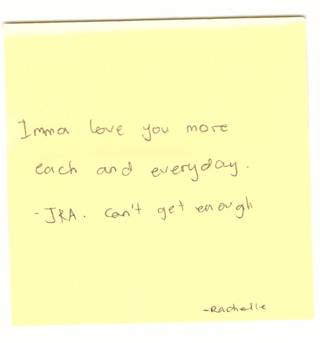 Imma love you more
each and everyday.
- JRA. Can't get enough
-Rachelle